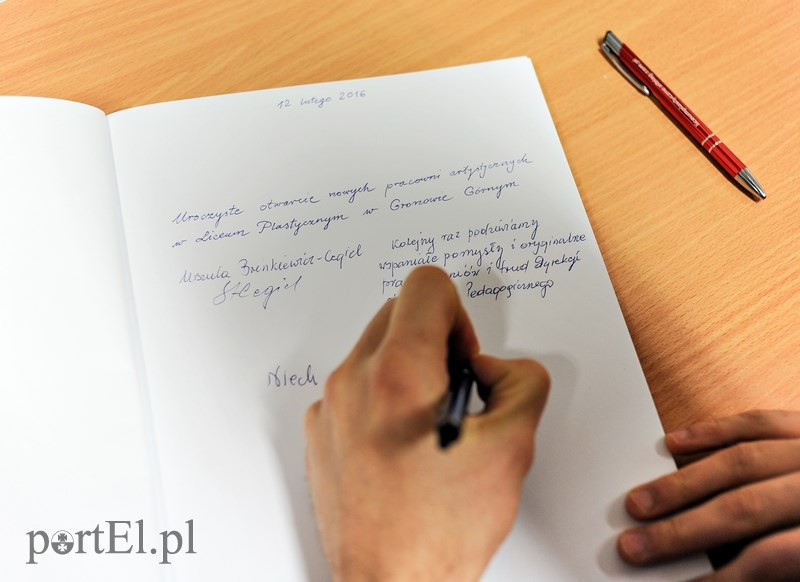 12 lutego 2016
Uroczyste otwarcie nowych pracowni artystycznych
w Liceum Plastycznym w Gronowie Górnym
Urszula
Kolejny raz podziwiamy
wspaniałe pomysły i oryginalne
i trud Dyrekcji
Pedagogicznego
Niech
portEl.pl